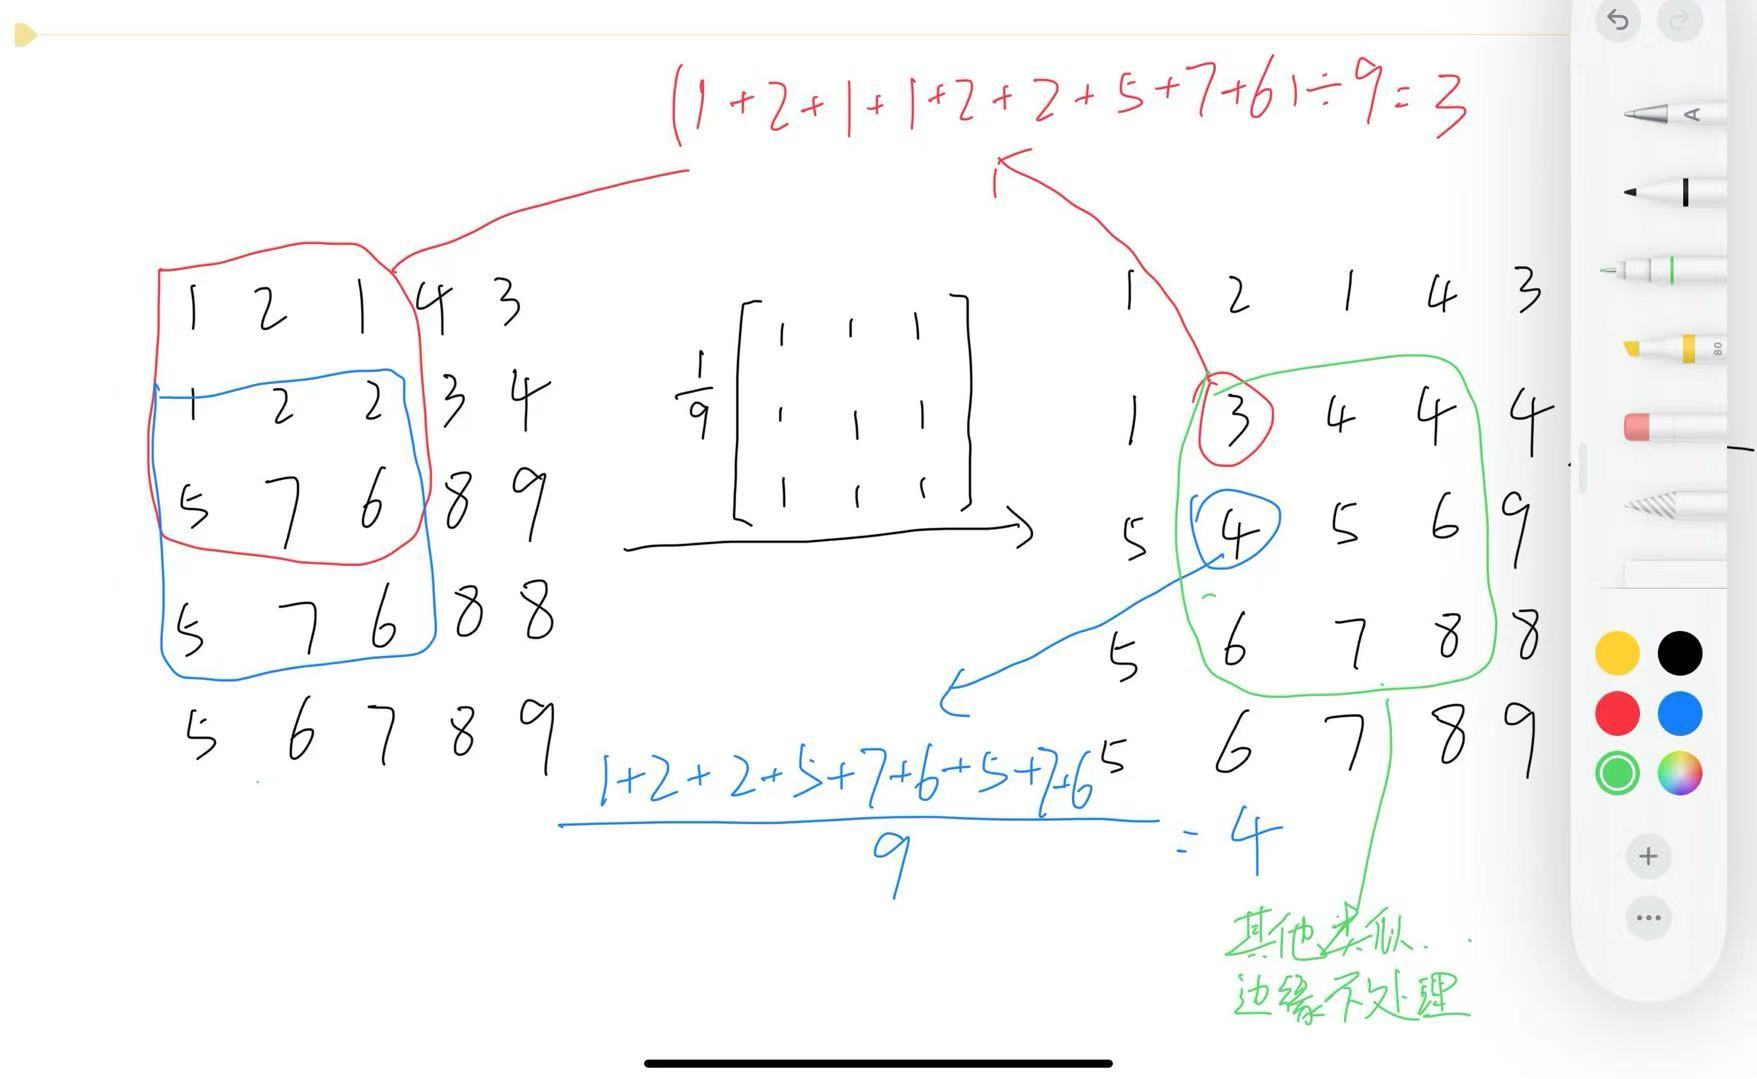 (1+2+1+1+2+2+5+7+6)÷9=3
1 2 1 4 3
1 2 2 3 4
5 7 6 8 9
5 7 6 8 8
5 6 7 8 9
1/9
1 1 1
1 1 1
1 1 1
1 2 1 4 3
1 3 4 4 4
5 4 5 6 9
5 6 7 8 8
5 6 7 8 9
1+2+2+5+7+6+5+7+6
9
= 4
其他类似..
边缘不处理
A
80